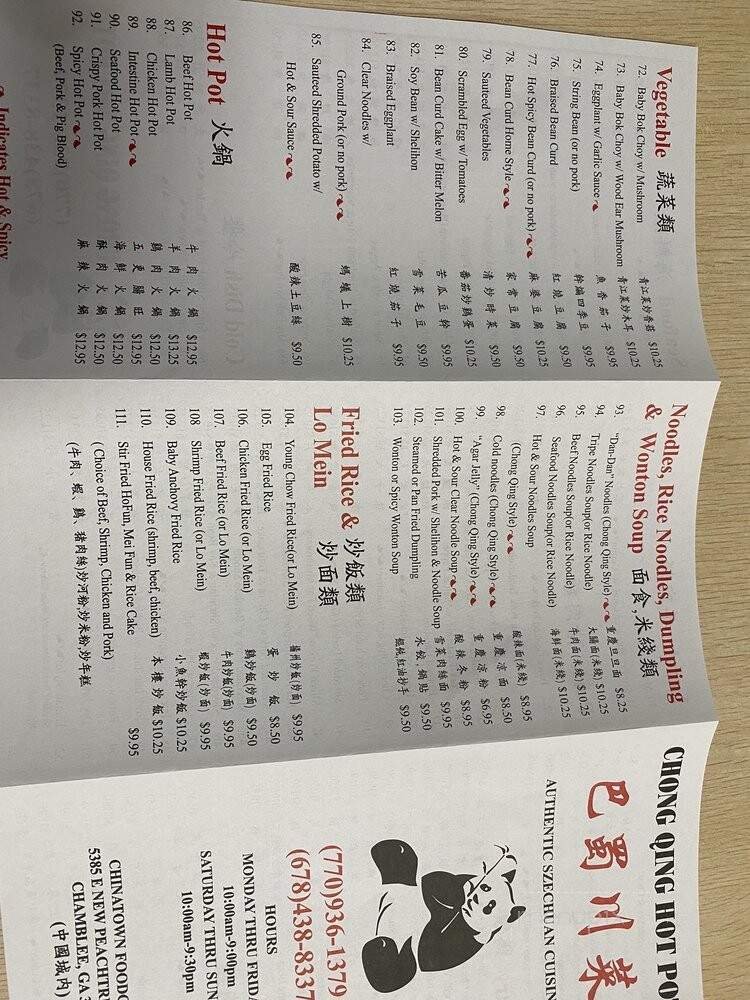 Vegetable 蔬菜類
72. Baby Bok Choy w/ Mushroom 青江菜炒香菇 $10.25
73. Baby Bok Choy w/ Wood Ear Mushroom 青江菜炒木耳 $10.25
74. Eggplant w/ Garlic Sauce 魚香茄子 $9.95
75. String Bean (or no pork) 幹煸四季豆 $9.95
76. Braised Bean Curd 紅燒豆腐 $9.50
77. Hot Spicy Bean Curd (or no pork) 麻婆豆腐 $10.25
78. Bean Curd Home Style 家常豆腐 $9.50
79. Sauteed Vegetables 清炒時菜 $9.50
80. Scrambled Egg w/ Tomatoes 番茄炒鷄蛋 $10.25
81. Bean Curd Cake w/ Bitter Melon 苦瓜豆幹 $9.95
82. Soy Bean w/ Shelihon 雪菜毛豆 $9.50
83. Braised Eggplant 紅燒茄子 $9.95
84. Clear Noodles w/
Ground Pork (or no pork) 螞蟻上樹 $10.25
85. Sauteed Shredded Potato w/
Hot & Sour Sauce 酸辣土豆絲 $9.50
Hot Pot 火鍋
86. Beef Hot Pot 牛肉火鍋 $12.95
87. Lamb Hot Pot 羊肉火鍋 $13.25
88. Chicken Hot Pot 鷄肉火鍋 $12.50
89. Intestine Hot Pot 五更腸旺 $12.95
90. Seafood Hot Pot 海鮮火鍋 $12.50
91. Crispy Pork Hot Pot 酥肉火鍋 $12.50
92. Spicy Hot Pot 麻辣火鍋 $12.95
(Beef, Pork & Pig Blood)
Indicates Hot & Spicy
Noodles, Rice Noodles, Dumpling
& Wonton Soup 面食,米綫類
93. "Dan-Dan" Noodles (Chong Qing Style) 重慶旦旦面 $8.25
94. Tripe Noodles Soup(or Rice Noodle) 大腸面(米綫) $10.25
95. Beef Noodles Soup(or Rice Noodle) 牛肉面(米綫) $10.25
96. Seafood Noodles Soup(or Rice Noodle) 海鮮面(米綫) $10.25
97. Hot & Sour Noodles Soup
(Chong Qing Style) 酸辣面(米綫) $8.95
98. Cold noodles (Chong Qing Style) 重慶凉面 $8.50
99. "Agar Jelly" (Chong Qing Style) 重慶凉粉 $6.95
100. Hot & Sour Clear Noodle Soup 酸辣冬粉 $8.95
101. Shredded Pork w/ Shelihon & Noodle Soup 雪菜肉絲面 $9.95
102. Steamed or Pan Fried Dumpling 水餃、鍋貼 $9.50
103. Wonton or Spicy Wonton Soup 餛飩,紅油抄手 $9.50
Fried Rice & 炒飯類
Lo Mein 炒面類
104. Young Chow Fried Rice(or Lo Mein) 揚州炒飯(炒面) $9.95
105. Egg Fried Rice 蛋炒飯 $8.50
106. Chicken Fried Rice (or Lo Mein) 鷄炒飯(炒面) $9.50
107. Beef Fried Rice (or Lo Mein) 牛肉炒飯(炒面) $9.95
108 Shrimp Fried Rice (or Lo Mein) 蝦炒飯(炒面) $9.95
109. Baby Anchovy Fried Rice 小魚幹炒飯 $10.25
110. House Fried Rice (shrimp, beef, chicken) 本樓炒飯 $10.25
111. Stir Fried HoFun, Mei Fun & Rice Cake $9.95
( Choice of Beef, Shrimp, Chicken and Pork)
(牛肉、蝦、鷄、猪肉絲)炒河粉,炒米粉,炒年糕
CHONG QING HOT PO
巴蜀川菜
AUTHENTIC SZECHUAN CUISIN
(770)936-1379
(678)438-8337
HOURS
MONDAY THRU FRIDA
10:00am-9:00pm
SATURDAY THRU SUN
10:00am-9:30pm
CHINATOWN FOODC
5385 E NEW PEACHTR
CHAMBLEE, GA 3
(中國城内)